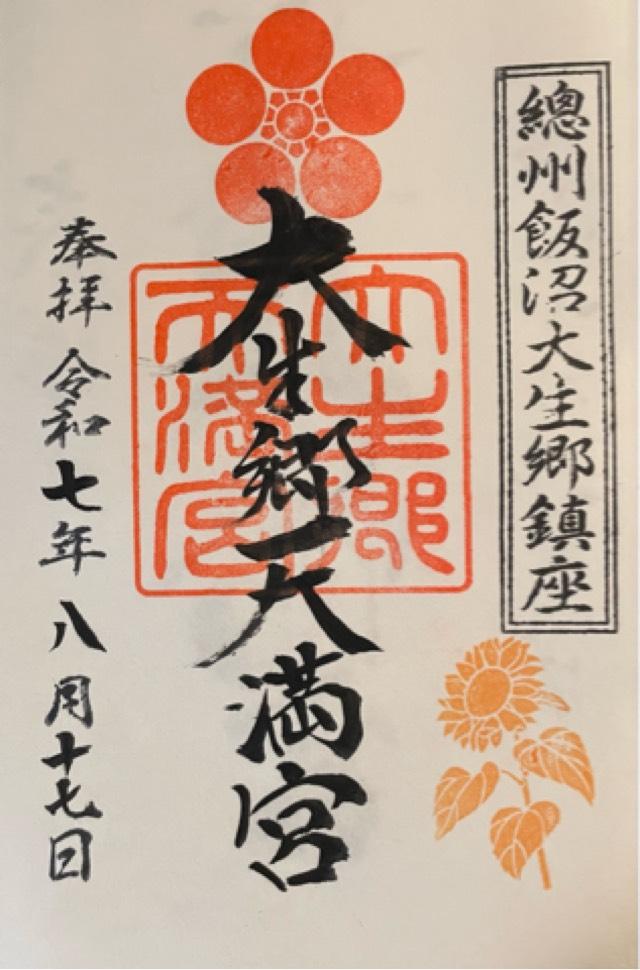 總州飯沼大生郷鎮座
大生郷天満宮
大生郷
天満宮
奉拝 令和七年八月十七日